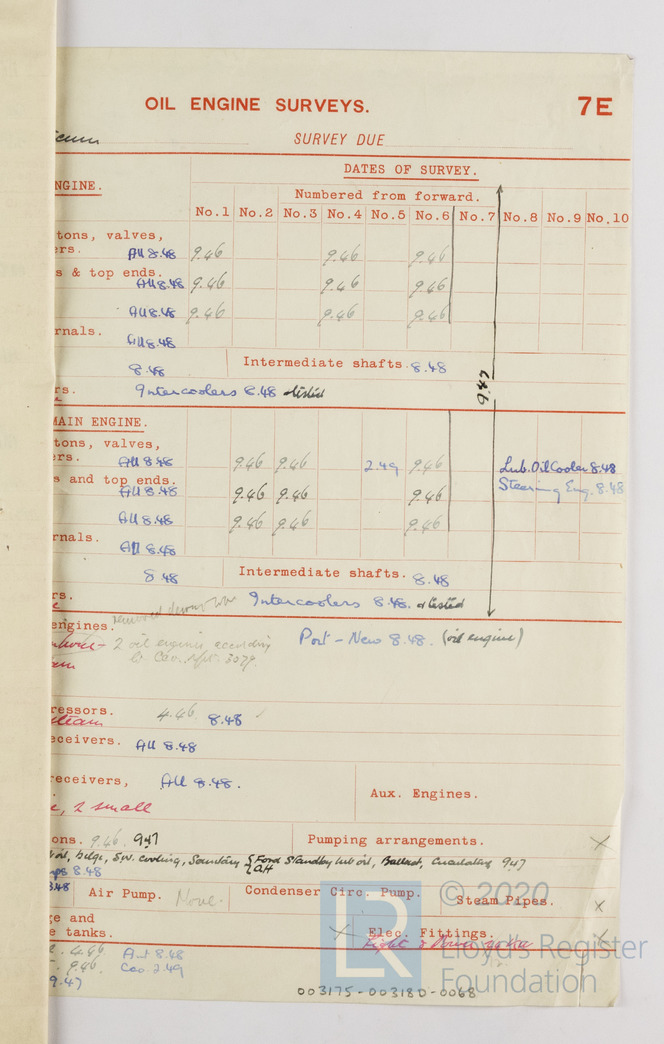 OIL ENGINE SURVEYS. 7E
SURVEY DUE
DATES OF SURVEY.
NGINE.
Numbered from forward.
No.1 No.2 No.3 No.4 No.5 No.6 No.7 No.8 No.9 No.10
tons, valves,
ers. All 8.48 9.46 9.46 9.46
s & top ends.
All 8.48 9.46 9.46 9.46
All 8.48 9.46 9.46 9.46
rnals.
All 8.48
8.48 Intermediate shafts. 8.48
rs. Intercoolers 8.48 tested
MAIN ENGINE.
tons, valves,
ers. All 8.48 9.46 9.46 2.49 9.46 Lub. Oil Cooler 8.48
s and top ends. Steering Eng. 8.48
All 8.48 9.46 9.46 9.46
All 8.48 9.46 9.46 9.46
rnals.
All 8.48
8.48 Intermediate shafts. 8.48
rs. Intercoolers 8.48. tested
engines. removed
2 oil engines according Port - New 8.48. (oil engine)
ressors. 4.46 8.48
steam
eceivers. All 8.48
receivers, All 8.48.
Aux. Engines.
2 small
ons. 9.46. 9.47 Pumping arrangements. X
oil, bilge, S.W. cooling, Sanitary {Ford Standby lub oil, Ballast, Circulating 9.47
{aft
ps 8.48
8.48 Air Pump. None. Condenser Circ. Pump. Steam Pipes. X
ge and
e tanks. X Elec. Fittings. X
Light & Power
4.46 Aut 8.48
9.46. Cas. 2.49
9.47
003175-003180-0068
LR
© 2020
Lloyd's Register
Foundation